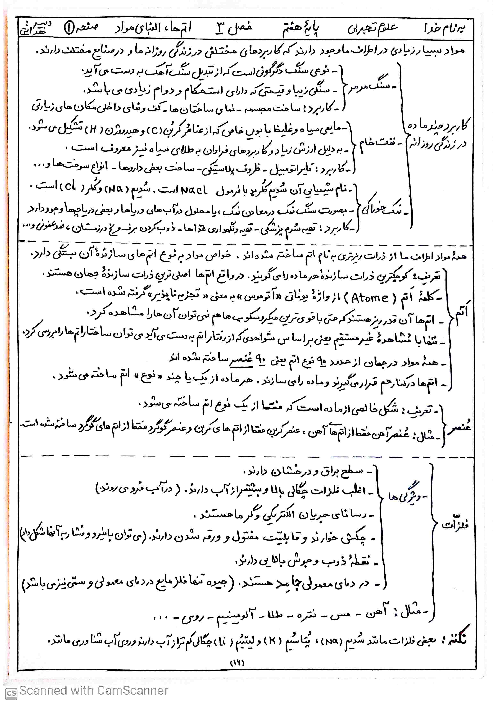 به نام خدا علوم تجربی پایهٔ هفتم فصل ۳ اتم‌ها، الفبای مواد صفحه ۱
مواد بسیار زیادی در اطراف ما وجود دارند که کاربردهای مختلفی در زندگی روزانهٔ ما و در صنایع مختلف دارند.
کاربرد چند ماده در زندگی روزانه
- سنگ مرمر
- نوعی سنگ دگرگونی است که از تبدیل سنگ آهک به دست می‌آید.
- سنگی زیبا و قیمتی که دارای استحکام و دوام زیادی می‌باشد.
- کاربرد: ساخت مجسمه - نمای ساختمان‌ها - کف و نمای داخلی مکان‌های زیارتی
- نفت خام
- مایعی سیاه و غلیظ با بویی خاص که از عناصر کربن (C) و هیدروژن (H) تشکیل می‌شود.
- به دلیل ارزش زیاد و کاربردهای فراوان به طلای سیاه نیز معروف است.
- کاربرد: تایر اتومبیل - ظروف پلاستیکی - ساخت بعضی داروها - انواع سوخت‌ها و...
- نمک خوراکی
- نام شیمیایی آن سدیم کلرید با فرمول NaCl است. سدیم (Na) و کلر (Cl) است.
- بصورت سنگ نمک در معادن نمک، یا محلول در آب‌های دریاها و بعضی دریاچه‌ها وجود دارد
- کاربرد: تهیه سرم پزشکی - تهیه و نگهداری غذاها - ذوب کردن برف و یخ در زمستان، ضدعفونی و...
همهٔ مواد اطراف ما از ذرات ریزتری به نام اتم ساخته شده‌اند. خواص مواد به نوع اتم‌های سازندهٔ آن بستگی دارد.
اتم
- تعریف: کوچکترین ذرات سازندهٔ هر ماده را می‌گویند. در واقع اتم‌ها اصلی‌ترین ذرات سازندهٔ جهان هستند.
- کلمهٔ اتم (Atome) از واژهٔ یونانی «آتوموس» به معنی «تجزیه ناپذیر» گرفته شده است.
- اتم‌ها آن قدر ریز هستند که حتی با قوی ترین میکروسکوپ‌ها هم نمی‌توان آن‌ها را مشاهده کرد.
- تنها با مشاهدهٔ غیر مستقیم یعنی بر اساس شواهدی که از رفتار اتم به دست می‌آید می‌توان ساختار اتم‌ها را بررسی کرد.
- همهٔ مواد در جهان از حدود ۹۰ نوع اتم یعنی ۹۰ عنصر ساخته شده اند
- اتم‌ها در کنار هم قرار می‌گیرند و ماده را می‌سازند. هر ماده از یک یا چند «نوع» اتم ساخته می‌شود.
عنصر
- تعریف: شکل خالصی از ماده است که فقط از یک نوع اتم ساخته می‌شود.
- مثال: عنصر آهن فقط از اتم‌های آهن، عنصر کربن فقط از اتم‌های کربن و عنصر گوگرد فقط از اتم‌های گوگرد ساخته شده است.
فلزات
- ویژگی‌ها
- سطح براق و درخشان دارند.
- اغلب فلزات چگالی بالا و بیشتر از آب دارند. (در آب فرو می‌روند)
- رسانای جریان الکتریکی و گرما هستند.
- چکش خوارند و قابلیت مفتول و ورقه شدن دارند. (می‌توان با ضربه و فشار به آنها شکل داد)
- نقطهٔ ذوب و جوش بالایی دارند.
- در دمای معمولی جامد هستند. (جیوه تنها فلز مایع در دمای معمولی و سمی نیز می‌باشد)
- مثال: آهن - مس - نقره - طلا - آلومینیم - روی - ...
نکته: بعضی فلزات مانند سدیم (Na)، پتاسیم (K) و لیتیم (Li) چگالی کم‌تر از آب دارند و روی آب شناور می‌مانند.
(۱۷)
CS Scanned with CamScanner